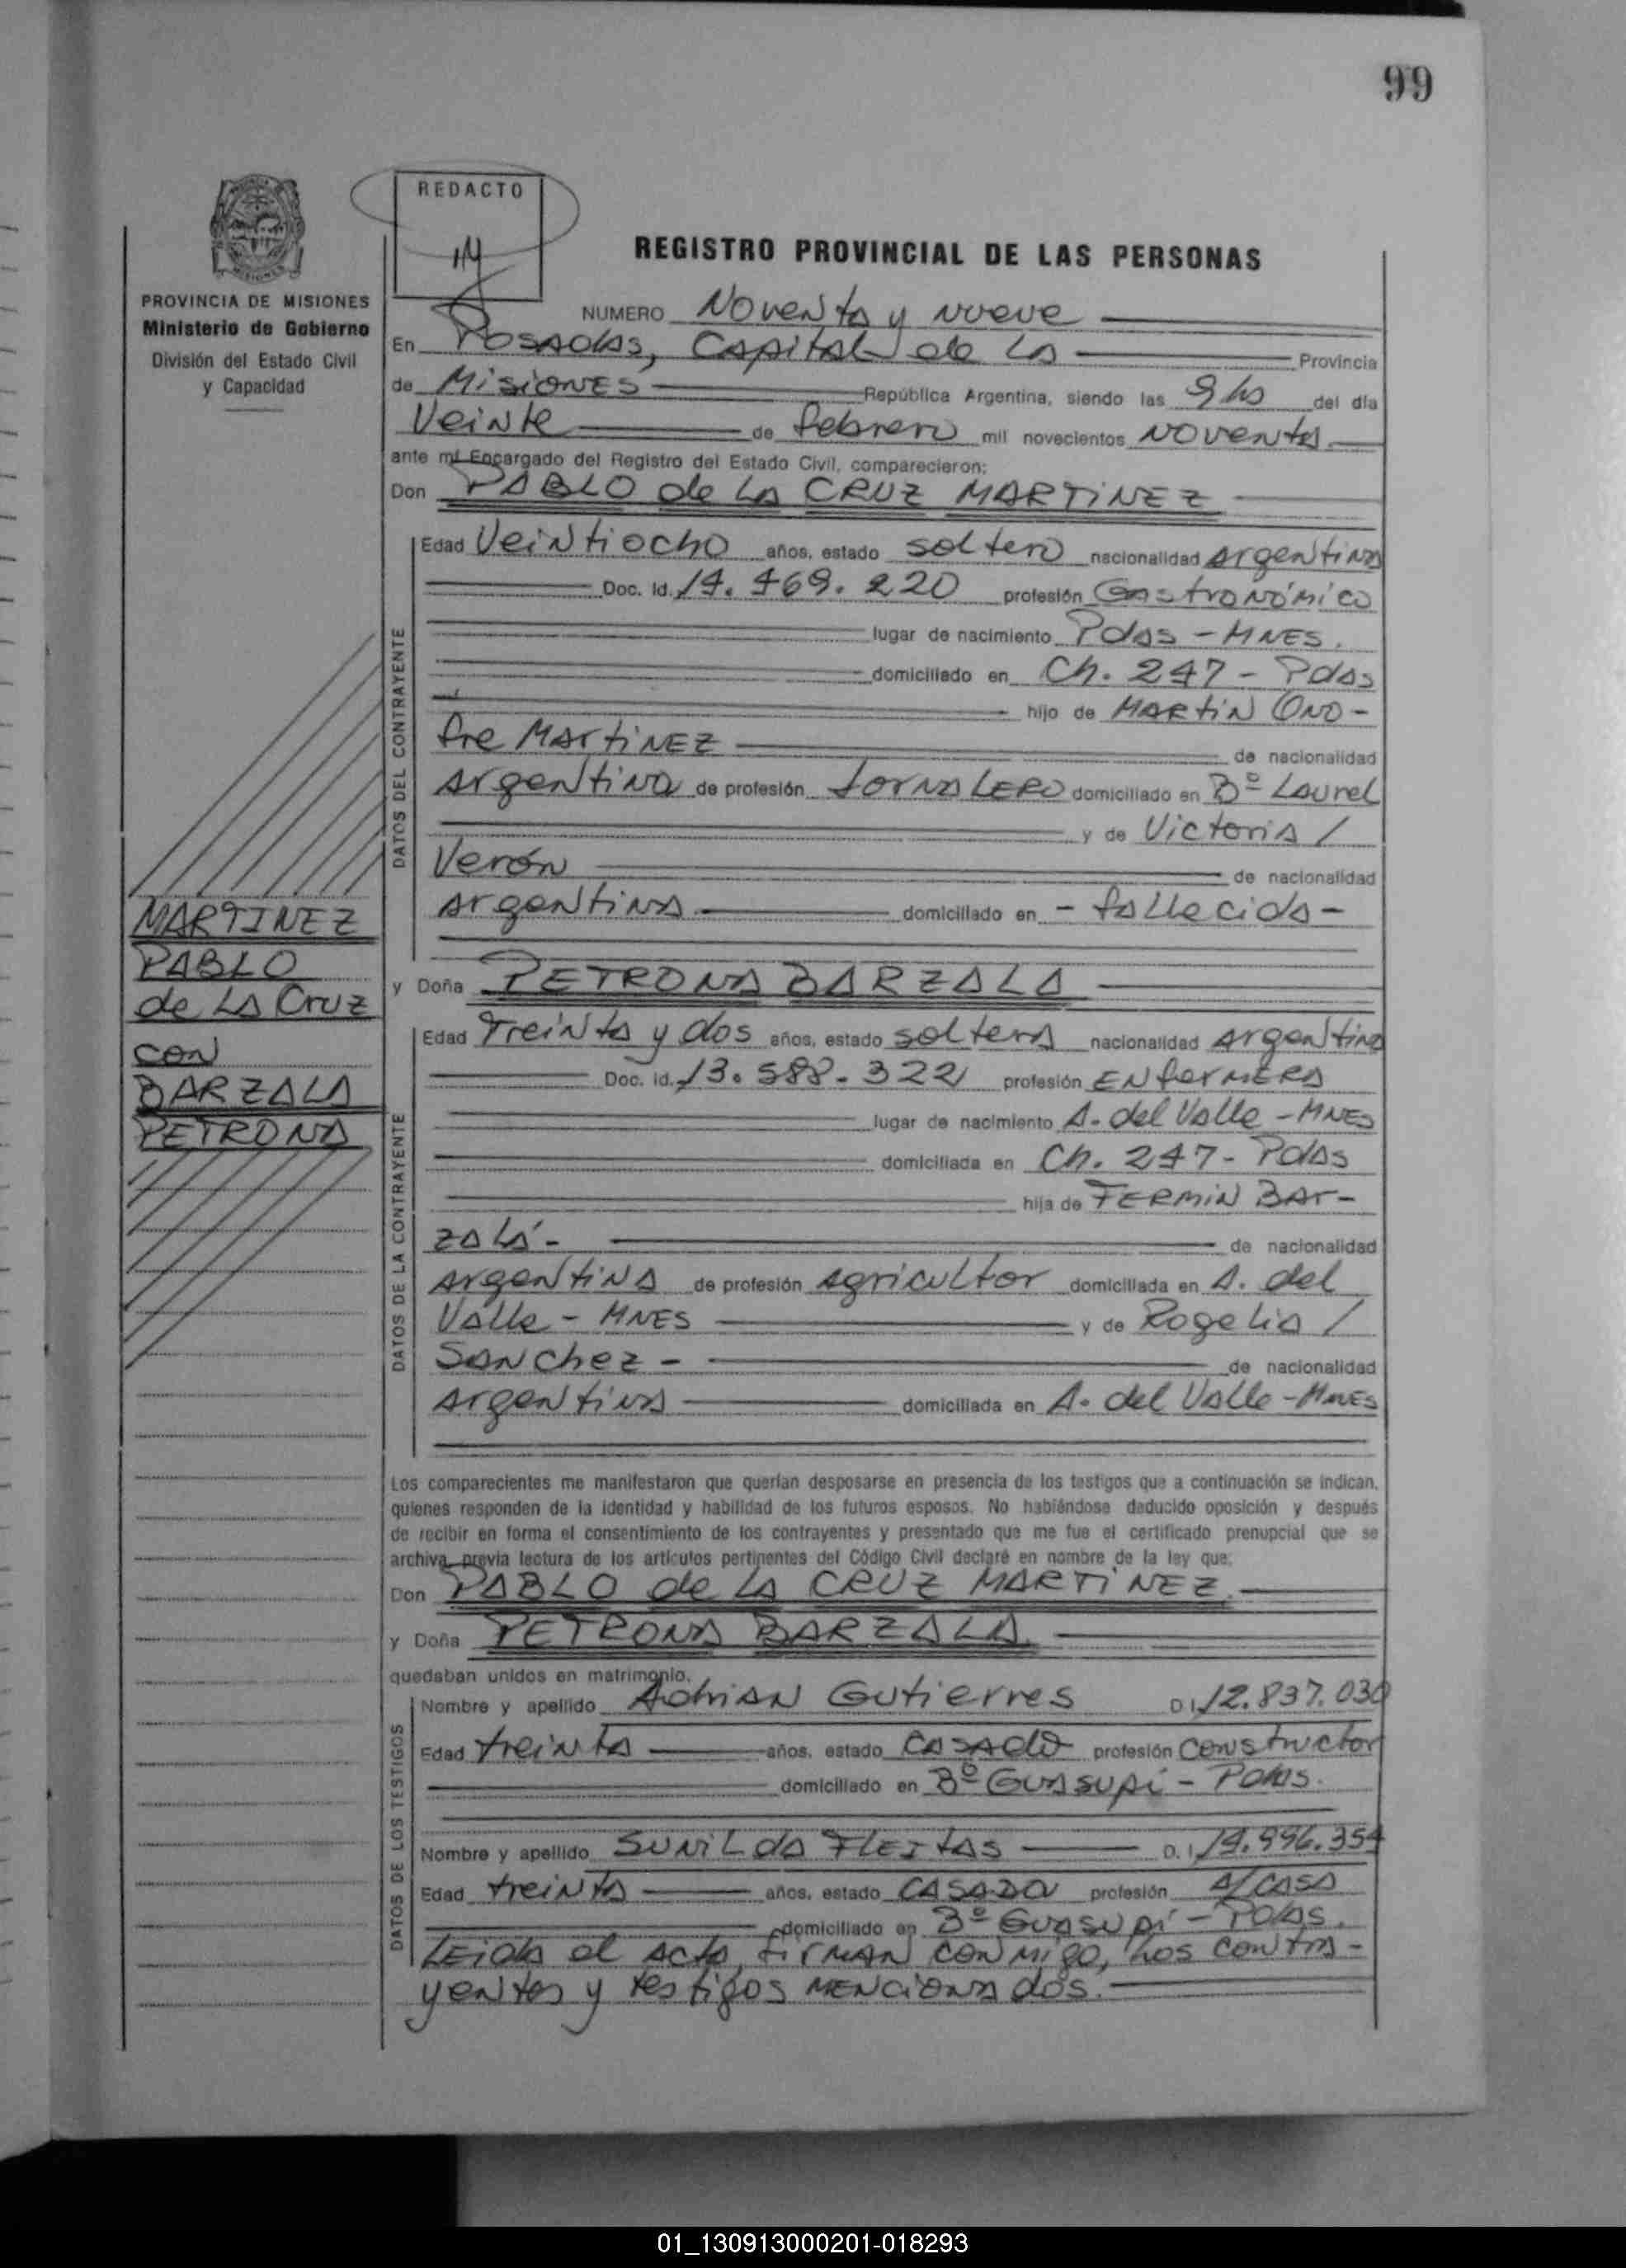 99
REDACTO
REGISTRO PROVINCIAL DE LAS PERSONAS
PROVINCIA DE MISIONES
Ministerio de Gobierno
División del Estado Civil
y Capacidad
NUMERO Noventa y nueve
En Posadas, Capital de la Provincia
de Misiones República Argentina, siendo las 9 hs del día
Veinte de febrero mil novecientos noventa
ante mí Encargado del Registro del Estado Civil, comparecieron:
Don PABLO de LA CRUZ MARTINEZ
DATOS DEL CONTRAYENTE
Edad Veintiocho años, estado soltero nacionalidad Argentina
Doc. Id. 14.469.220 profesión Gastronómico
lugar de nacimiento Pdas - MNES.
domiciliado en Ch. 247 - Pdas
hijo de MARTIN ONO-
fre MARTINEZ de nacionalidad
Argentina de profesión JORNALERO domiciliado en Bº Laurel
y de Victoria /
Verón de nacionalidad
Argentina domiciliado en - fallecida -
MARTINEZ
PABLO
de LA Cruz
con
BARZALA
PETRONA
y Doña PETRONA BARZALA
DATOS DE LA CONTRAYENTE
Edad Treinta y dos años, estado soltera nacionalidad Argentina
Doc. Id. 13.588.322 profesión ENfermera
lugar de nacimiento A. del Valle - MNES
domiciliada en Ch. 247 - Pdas
hija de FERMIN BAR-
ZALÁ - de nacionalidad
Argentina de profesión Agricultor domiciliada en A. del
Valle - MNES y de Rogelia /
SANchez - de nacionalidad
Argentina domiciliada en A. del Valle - MNES
Los comparecientes me manifestaron que querían desposarse en presencia de los testigos que a continuación se indican,
quienes responden de la identidad y habilidad de los futuros esposos. No habiéndose deducido oposición y después
de recibir en forma el consentimiento de los contrayentes y presentado que me fue el certificado prenupcial que se
archiva previa lectura de los artículos pertinentes del Código Civil declaré en nombre de la ley que:
Don PABLO de LA CRUZ MARTINEZ.
y Doña PETRONA BARZALA.
quedaban unidos en matrimonio.
DATOS DE LOS TESTIGOS
Nombre y apellido Adrian Gutierres D.I. 12.837.030
Edad treinta años, estado CASADO profesión constructor
domiciliado en Bº Guasupí - Pdas.
Nombre y apellido SUNILDA FLEITAS D.I. 14.996.354
Edad treinta años, estado CASADA profesión A/CASA
domiciliado en Bº Guasupí - Pdas.
Leida el Acta, firman conmigo, los contra-
yentes y testigos mencionados.
01_130913000201-018293